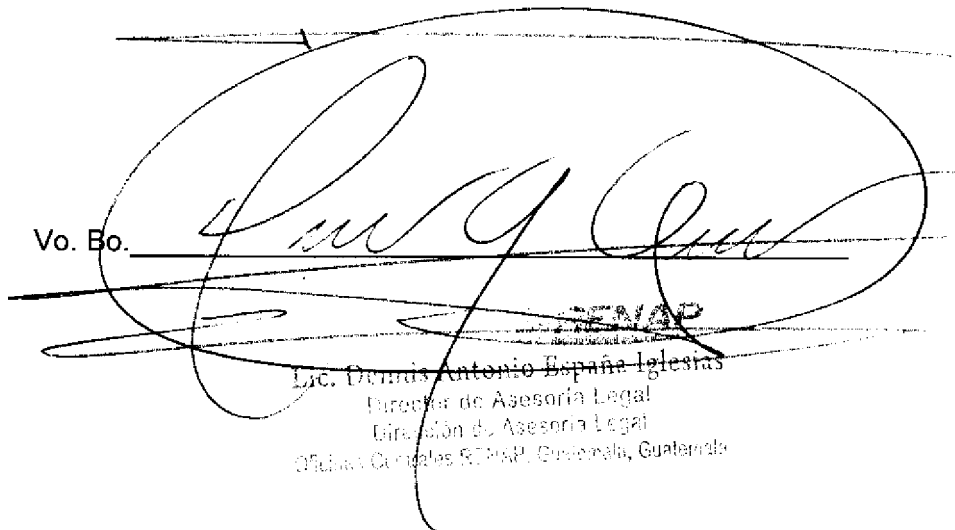 Vo. Bo.
RENAP
Lic. Dennis Antonio España Iglesias
Director de Asesoría Legal
Dirección de Asesoría Legal
Oficinas Centrales RENAP, Guatemala, Guatemala